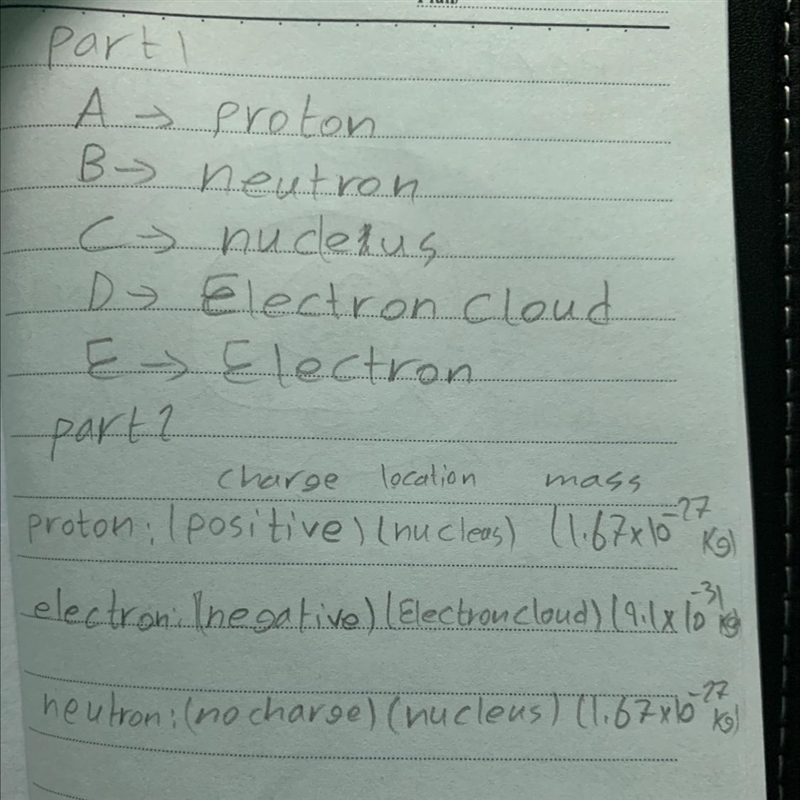 part 1
A → proton
B → neutron
C → nucleus
D → Electron cloud
E → Electron
part 2
charge location mass
proton: (positive) (nucleus) (1.67x10⁻²⁷ Kg)
electron: (negative) (Electron cloud) (9.1x10⁻³¹ kg
neutron: (no charge) (nucleus) (1.67x10⁻²⁷ Kg)